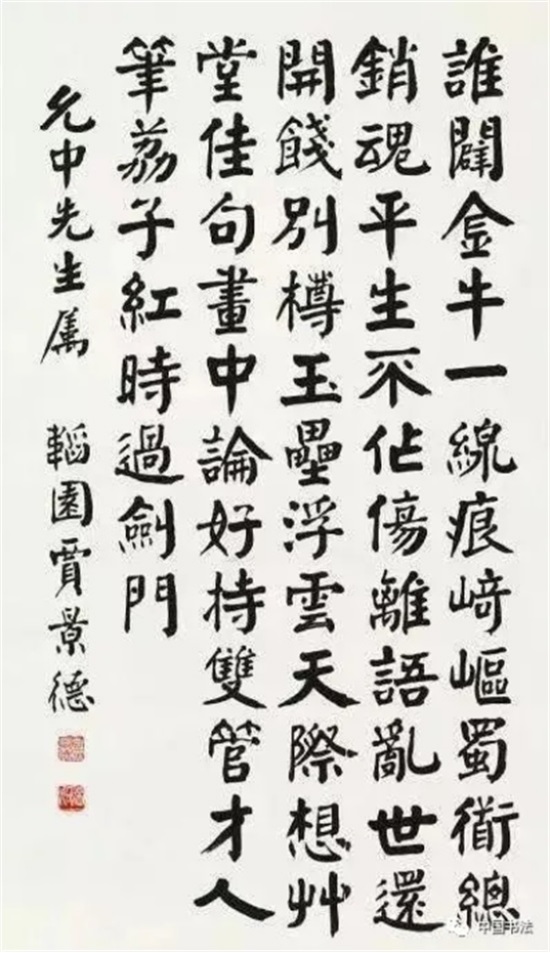 誰闢金牛一線痕崎嶇蜀衟總
銷魂平生不作傷離語亂世還
開餞別樽玉壘浮雲天際想艸
堂佳句畫中論好持雙管才人
筆荔子紅時過劍門
允中先生属 韜園賈景德
中国书法